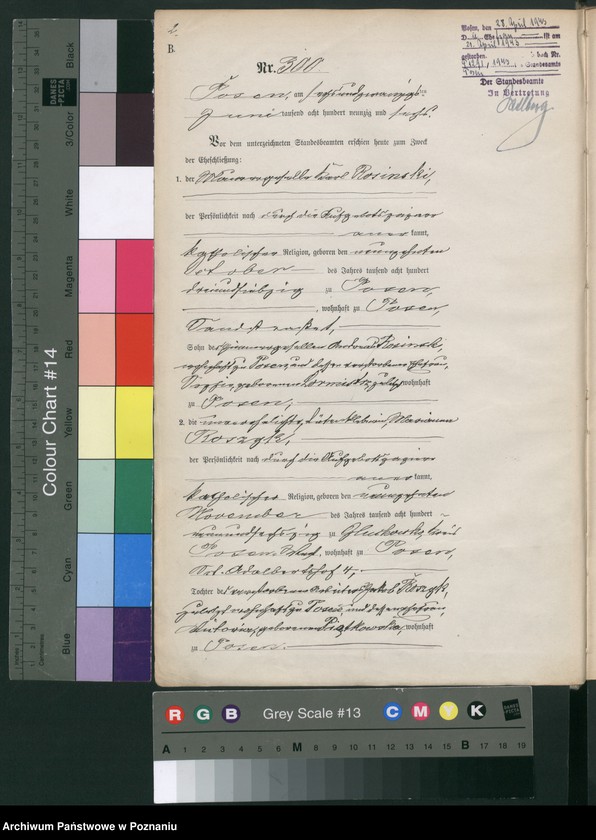 2.
B.
Posen, den 28. April 1943
ist am
21. April 1943
gestorben.
Standesamts
Der Standesbeamte
In Vertretung
Nr. 300.
Posen, am sechsundzwanzigsten
Juni tausend acht hundert neunzig und sechs.
Vor dem unterzeichneten Standesbeamten erschien heute zum Zweck
der Eheschließung:
1. der Maurergeselle Karl Rosinski,
der Persönlichkeit nach durch die Aufgebotspapiere
aner kannt,
katholischer Religion, geboren den neunzehnten
Oktober des Jahres tausend acht hundert
dreiundsiebzig zu Posen,
, wohnhaft zu Posen,
Sandstraße
Sohn des Zimmergesellen Andreas Rosinski,
wohnhaft zu Posen, und dessen verstorbenen Ehefrau,
geborenen wohnhaft
zu Posen,
2. die unverehelichte Marianna
Koszyk,
der Persönlichkeit nach durch die Aufgebotspapiere
aner kannt,
katholischer Religion, geboren den neunzehnten
November des Jahres tausend acht hundert
zu Gluchowo, Kreis
Posen West, wohnhaft zu Posen,
St. Adalbertshof 4,
Tochter des verstorbenen Arbeiters Jakob Koszyk,
zuletzt wohnhaft zu Posen, und dessen Ehefrau,
Viktoria, geborenen Piątkowska, wohnhaft
zu Posen.
Colour Chart #14
Blue
Cyan
Green
Yellow
Red
Magenta
White
3/Color
Black
DANES
-PICTA
.COM
Inches
Centimetres
R G B
Grey Scale #13
C M Y K
DANES
-PICTA
.COM
A 1 2 3 4 5 6 M 8 9 10 11 12 13 14 15 B 17 18 19
Archiwum Państwowe w Poznaniu